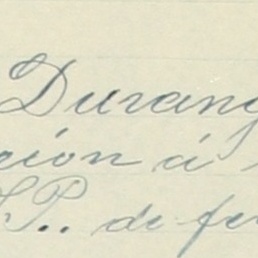 Durang
ción á
P.. de fe